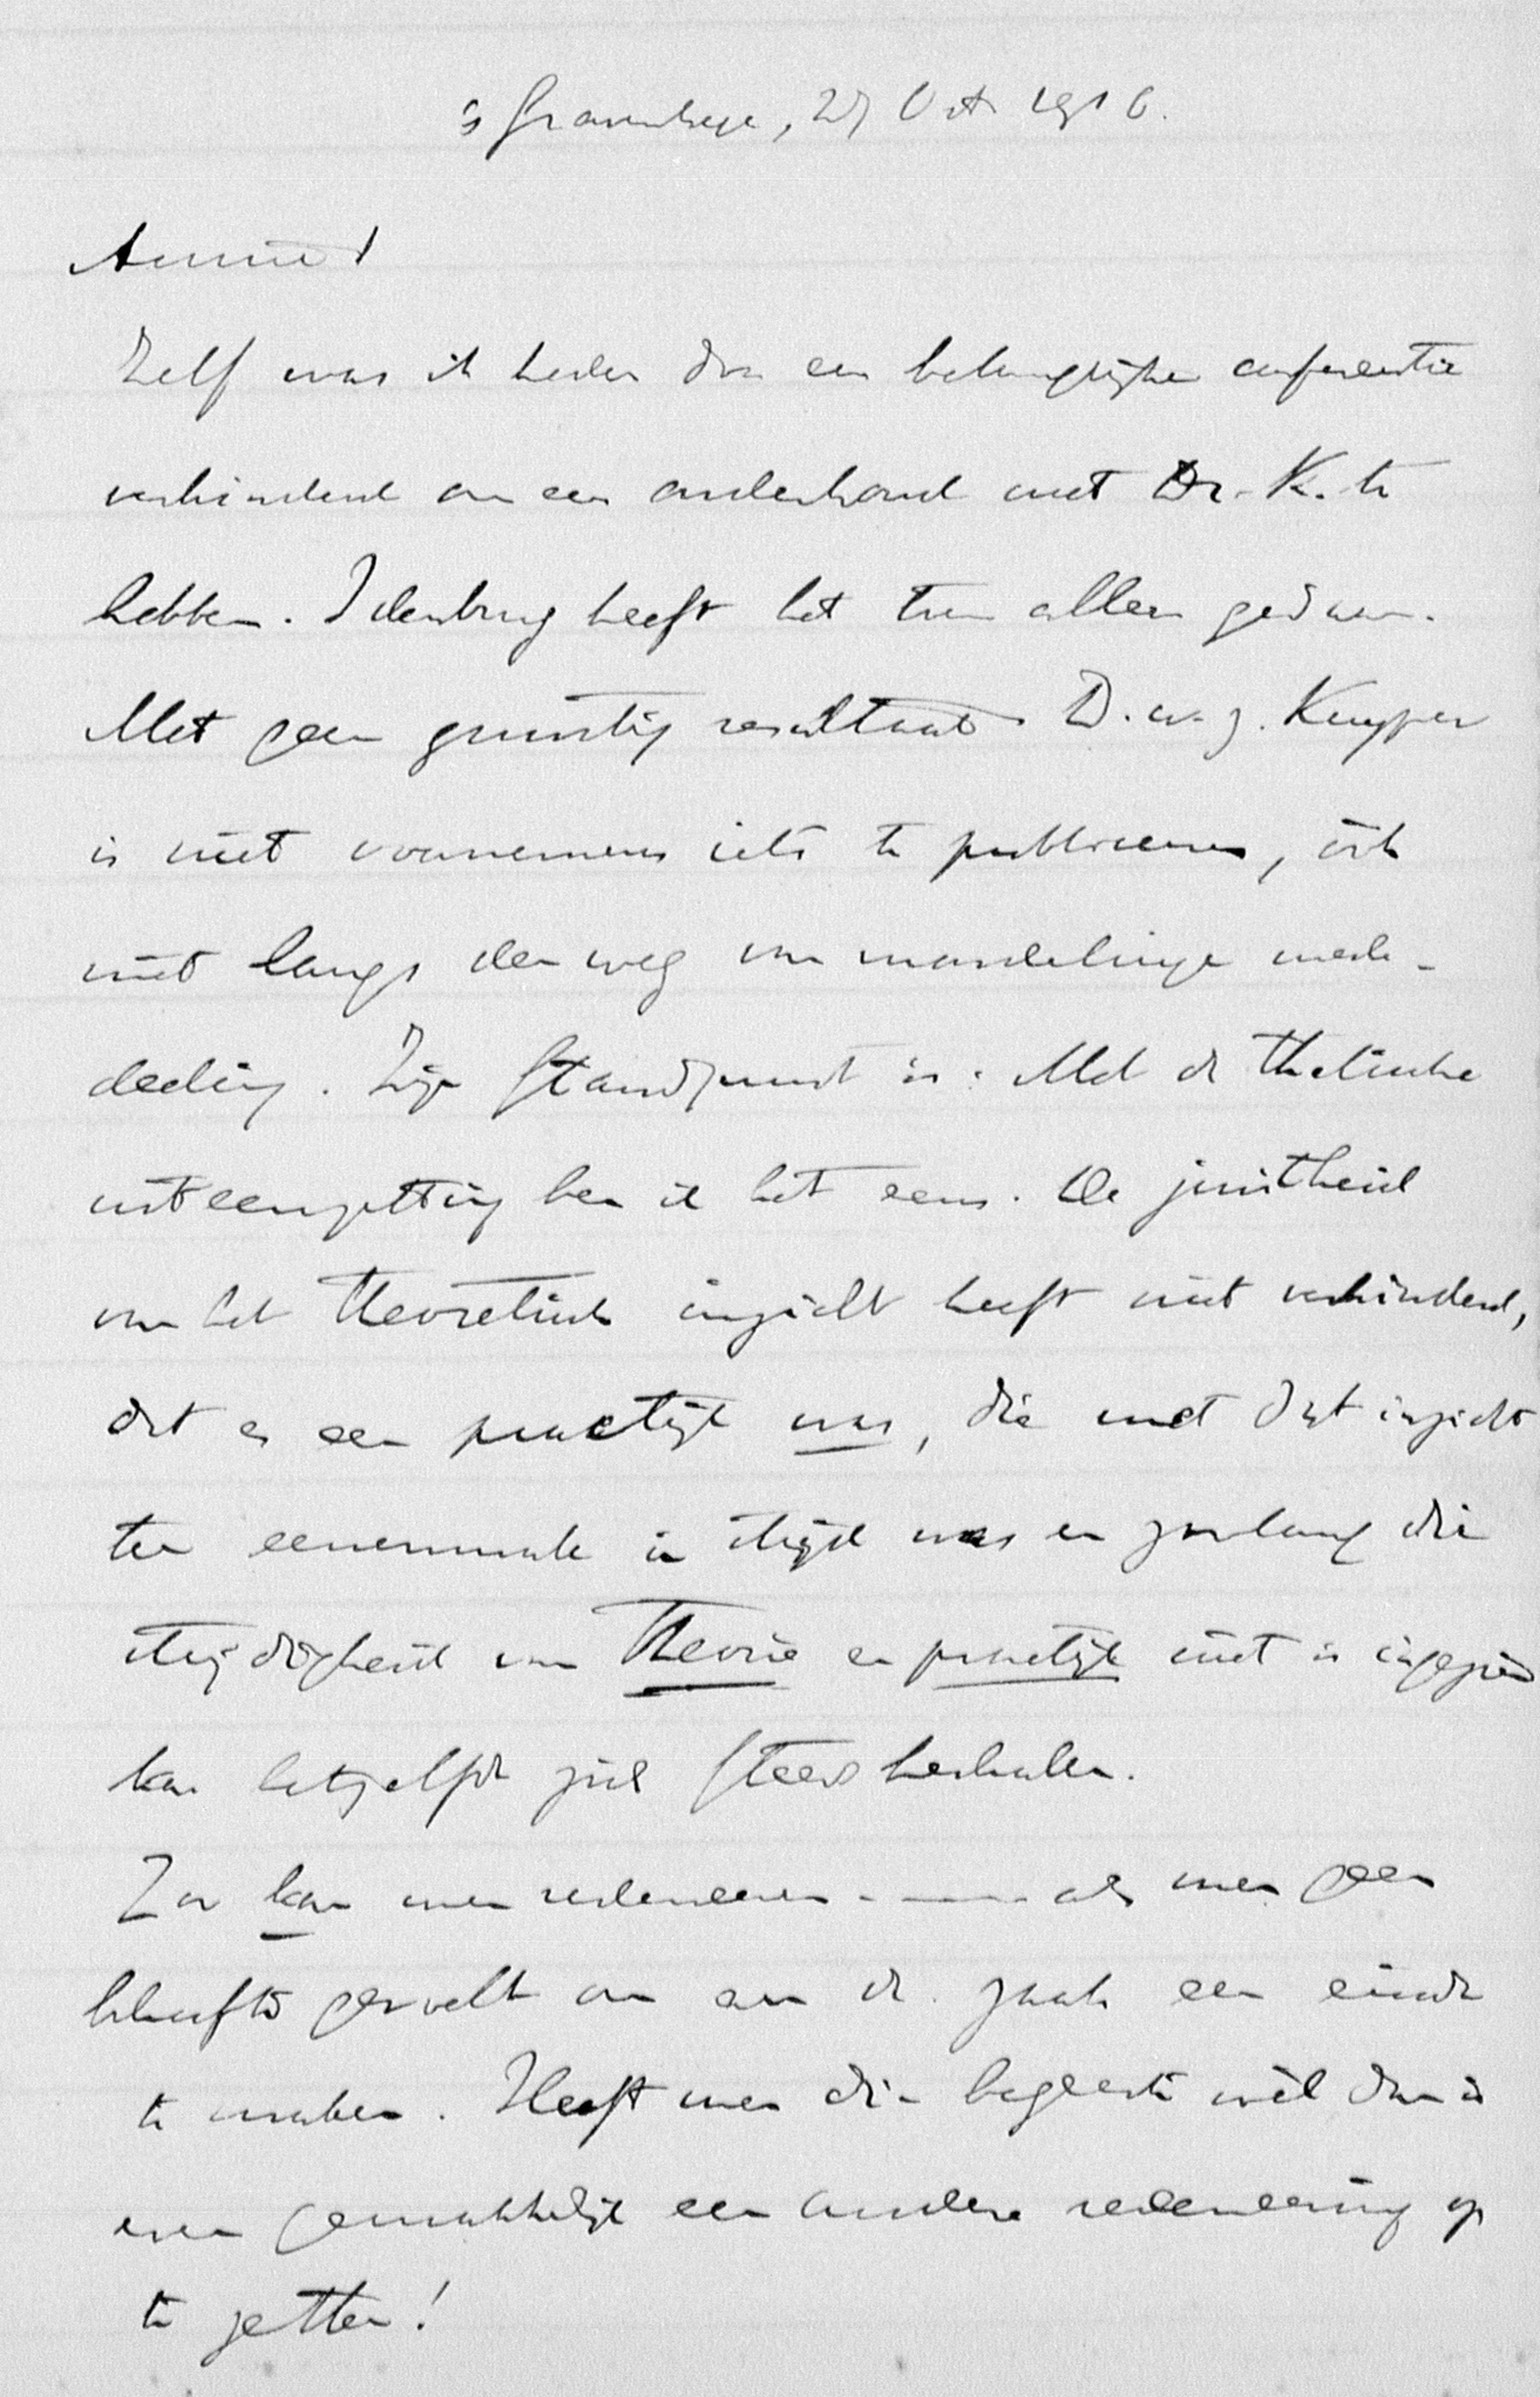 's Gravenhage, 27 Oct 1916.
Amice!
Zelf was ik heden door een belangrijke conferentie
verhinderd om een onderhoud met Dr. K. te
hebben. Idenburg heeft het toen alleen gedaan.
Met geen gunstig resultaat. D.w.z. Kuyper
is niet voornemens iets te publiceeren, óók
niet langs den weg van mondelinge mede-
deeling. Zijn standpunt is: Met de thetische
uiteenzetting ben ik het eens. De juistheid
van het theoretisch inzicht heeft niet verhinderd,
dat er een practijk was, die met dat inzicht
ten eenenmale in strijd was en zoolang die
strijdigheid van theorie en practijk niet is ingezien
kan hetzelfde zich steeds herhalen.
Zoo kan men redeneeren - als men geen
behoefte gevoelt om aan de zaak een einde
te maken. Heeft men die begeerte wèl dan is
even gemakkelijk een andere redeneering op
te zetten!